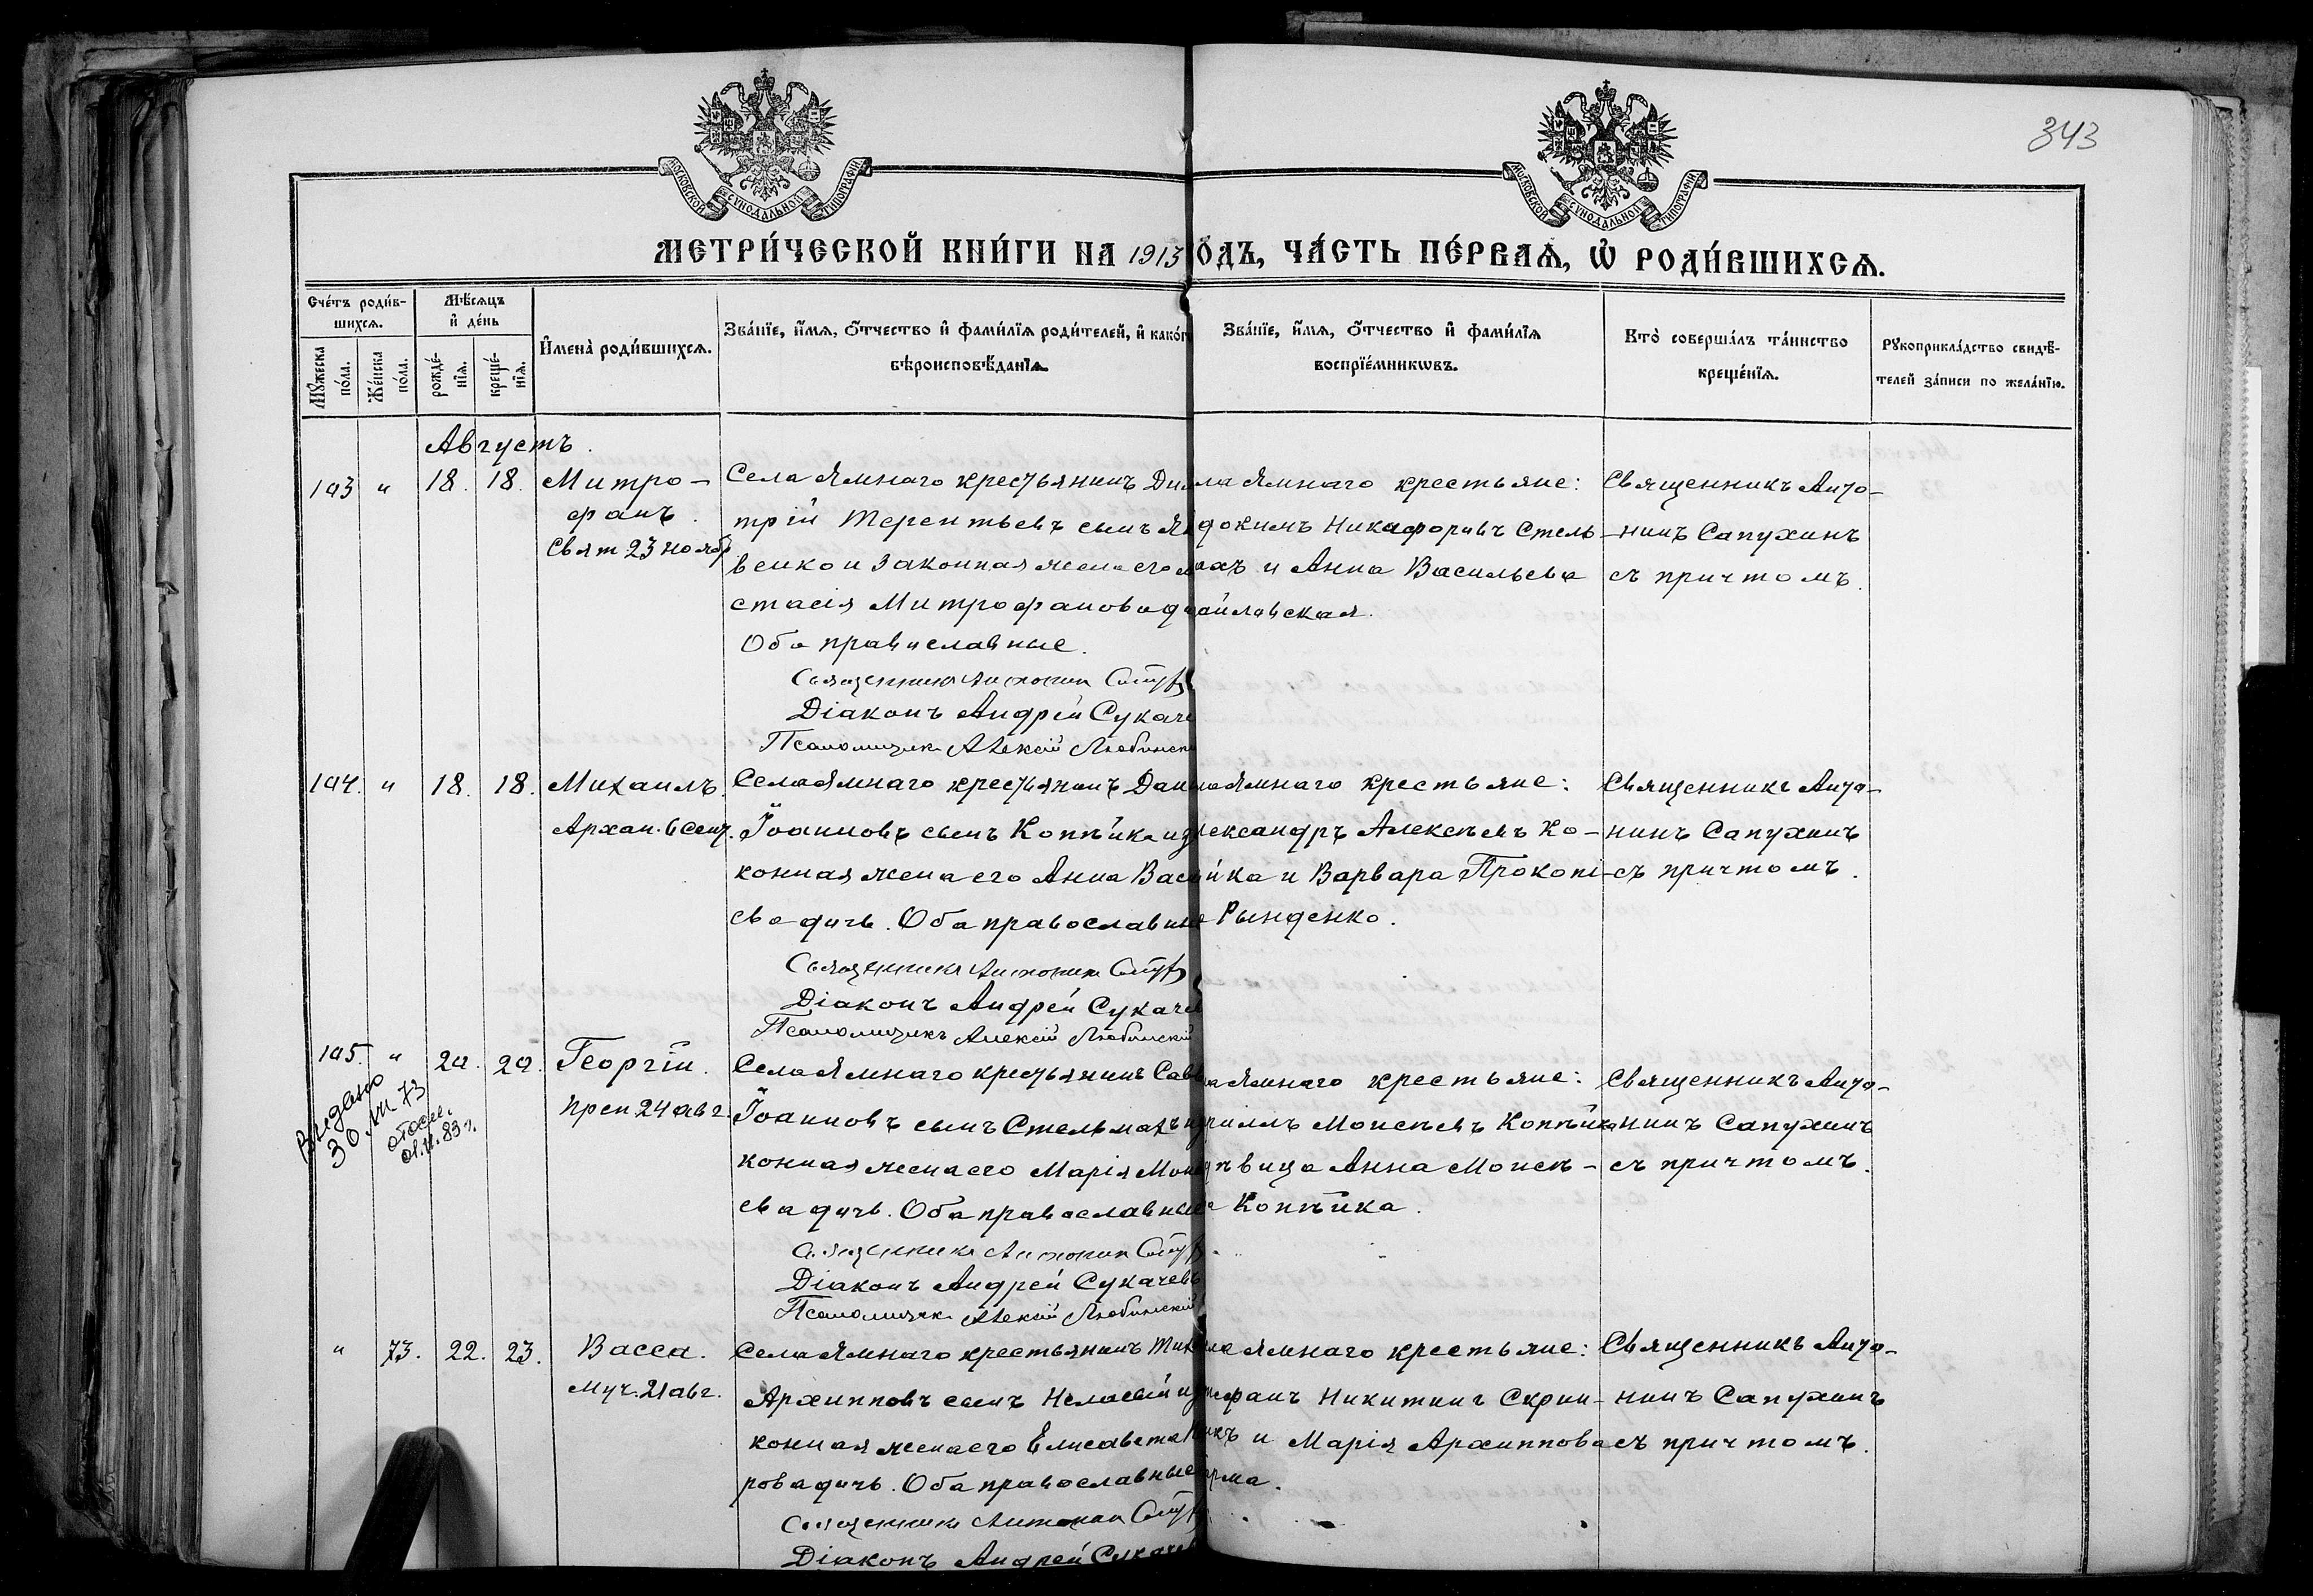 343
МОСКОВСКОЙ СѴНОДАЛЬНОЙ ТИПОГРАФІИ
МОСКОВСКОЙ СѴНОДАЛЬНОЙ ТИПОГРАФІИ
МЕТРИ́ЧЕСКОЙ КНИ́ГИ НА 1913 ОДЪ, ЧА́СТЬ ПЕ́РВАѦ, Ѡ҆ РОДИ́ВШИХСѦ.
Сче́тъ роди́в-
шихсѧ.
Мꙋ́жеска по́ла.
Же́нска по́ла.
Мѣ́сѧцъ и҆ де́нь
рожде́-нїѧ.
креще́-нїѧ.
И҆мена̀ роди́вшихсѧ.
Зва́нїе, и҆́мѧ, ѻ҆́тчество и҆ фами́лїѧ роди́телей, и҆ како́г
вѣроисповѣ́данїѧ.
Зва́нїе, и҆́мѧ, ѻ҆́тчество и҆ фами́лїѧ
воспрїе́мникѡвъ.
Кто̀ соверша́лъ та́инство
креще́нїѧ.
Рꙋкоприкла́дство свидѣ́-
телей за́писи по жела́нїю.
Августъ.
103 " 18. 18. Митро-
фанъ.
Свят 23 нояб
Села Ямнаго крестьянинъ Ди
трій Терентьевъ сынъ Я
венко и законная жена его
стасія Митрофанова д
Оба православные.
Священникъ Антонин
Діаконъ Андрей Сукаче
Псаломщикъ Алексій Любински
ла Ямнаго крестьяне:
докимъ Никифоровъ Стель
махъ и Анна Васильева
айловская.
Священникъ Анто-
нинъ Сапухинъ
съ причтомъ.
104. " 18. 18. Михаилъ.
Архан. 6 Сент.
Села Ямнаго крестьянинъ Дани
Іоанновъ сынъ Копѣйка и з
конная жена его Анна Васи
ева дичь. Оба православные
Священникъ Антонинъ
Діаконъ Андрей Сукачев
Псаломщикъ Алексій Любинскій
а Ямнаго крестьяне:
лександръ Алексѣевъ Ко-
йка и Варвара Прокопі-
Рынденко.
Священникъ Анто-
нинъ Сапухинъ
съ причтомъ.
105. " 20. 20. Георгій.
Преп 24 авг.
Выдано
30.VII.73
Села Ямнаго крестьянинъ Сав
Іоанновъ сынъ Стельмахъ и з
конная жена его Марія Мои
ева дичь. Оба православные
Священникъ Антонин
Діаконъ Андрей Сукачевъ
Псаломщикъ Алексій Любинскій
а Ямнаго крестьяне:
риллъ Моисѣевъ Копѣйка
ѣвица Анна Моисѣ-
Копѣйка.
Священникъ Анто-
нинъ Сапухинъ
съ причтомъ.
" 73. 22. 23. Васса.
Муч. 21 авг.
Села Ямнаго крестьянинъ Тих
Архипповъ сынъ и з
конная жена его Елисавета
рова дичь. Оба православные
Священникъ Антонин
Діаконъ Андрей Сукачев
ла Ямнаго крестьяне:
тефанъ Никитинъ Скрин-
никъ и Марія Архиппова
Священникъ Анто-
нинъ Сапухинъ
съ причтомъ.